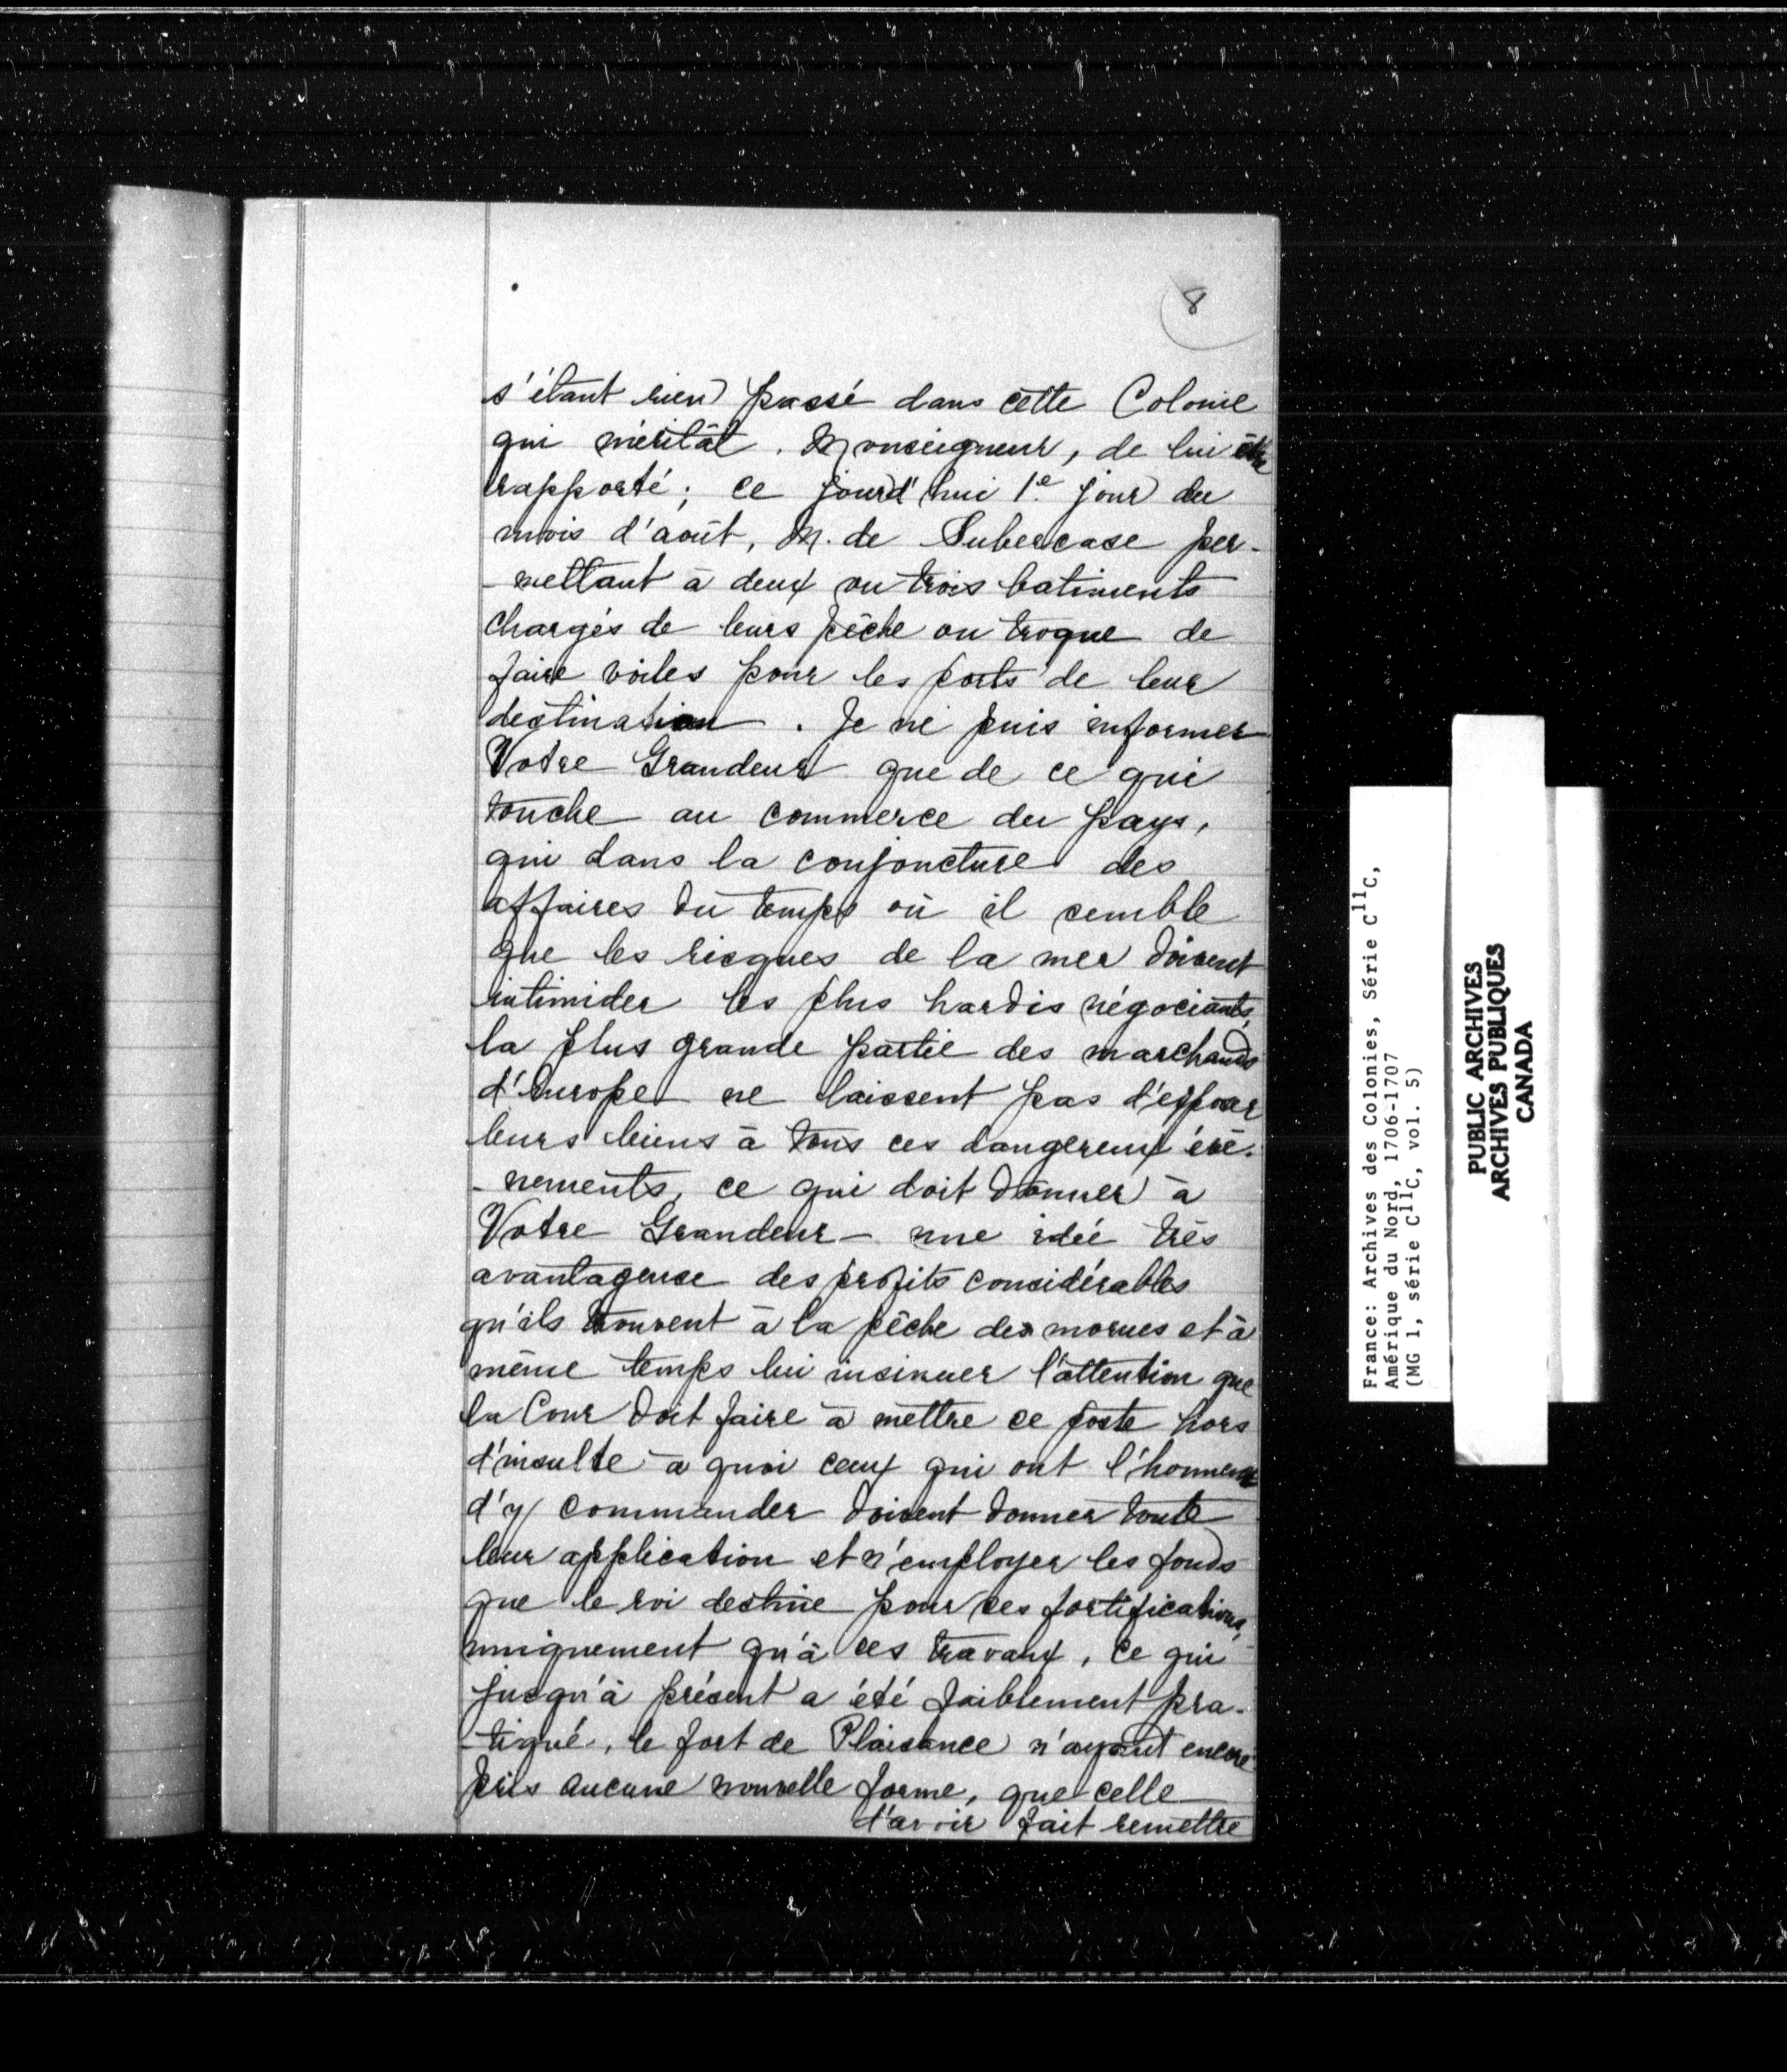 8
s'étant rien passé dans cette Colonie
qui méritât. Monseigneur, de lui être
rapporté; ce jourd'hui 1e jour du
mois d'août, M. de Subercase per-
-mettant à deux ou trois batiments
chargés de leurs pêche ou troque de
faire voiles pour les ports de leur
destination. Je ne puis informer
Votre Grandeur que de ce qui
touche au commerce du pays,
qui dans la conjoncture des
affaires du temps où il semble
que les risques de la mer doivent
intimider les plus hardis négociants,
la plus grande partie des marchands
d'Europe ne laissent pas d'exposer
leurs biens à tous ces dangereux évé-
-nements, ce qui doit donner à
Votre Grandeur - une idée très
avantageuse des profits considérables
qu'ils trouvent à la pêche des morues et à
même temps lui insinuer l'attention que
la Cour doit faire à mettre ce poste hors
d'insulte à quoi ceux qui ont l'honneur
d'y commander doivent donner toute
leur application et n'employer les fonds
que le roi destine pour ces fortifications,
uniquement qu'à ces travaux, ce qui
jusqu'à présent a été faiblement pra-
-tiqué, le fort de Plaisance n'ayant encore
pris aucune nouvelle forme, que celle
d'avoir fait remettre
France: Archives des Colonies, Série C11C,
Amérique du Nord, 1706-1707
(MG 1, série C11C, vol. 5)
PUBLIC ARCHIVES
ARCHIVES PUBLIQUES
CANADA